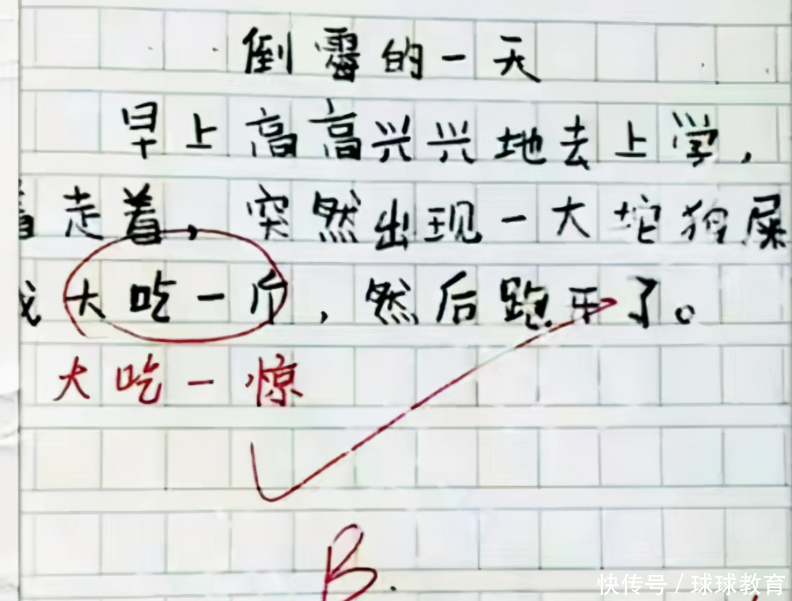 倒霉的一天
早上高高兴兴地去上学，
着走着，突然出现一大坨狗屎
我大吃一斤，然后跑开了。
大吃一惊
B.
快传号／球球教育